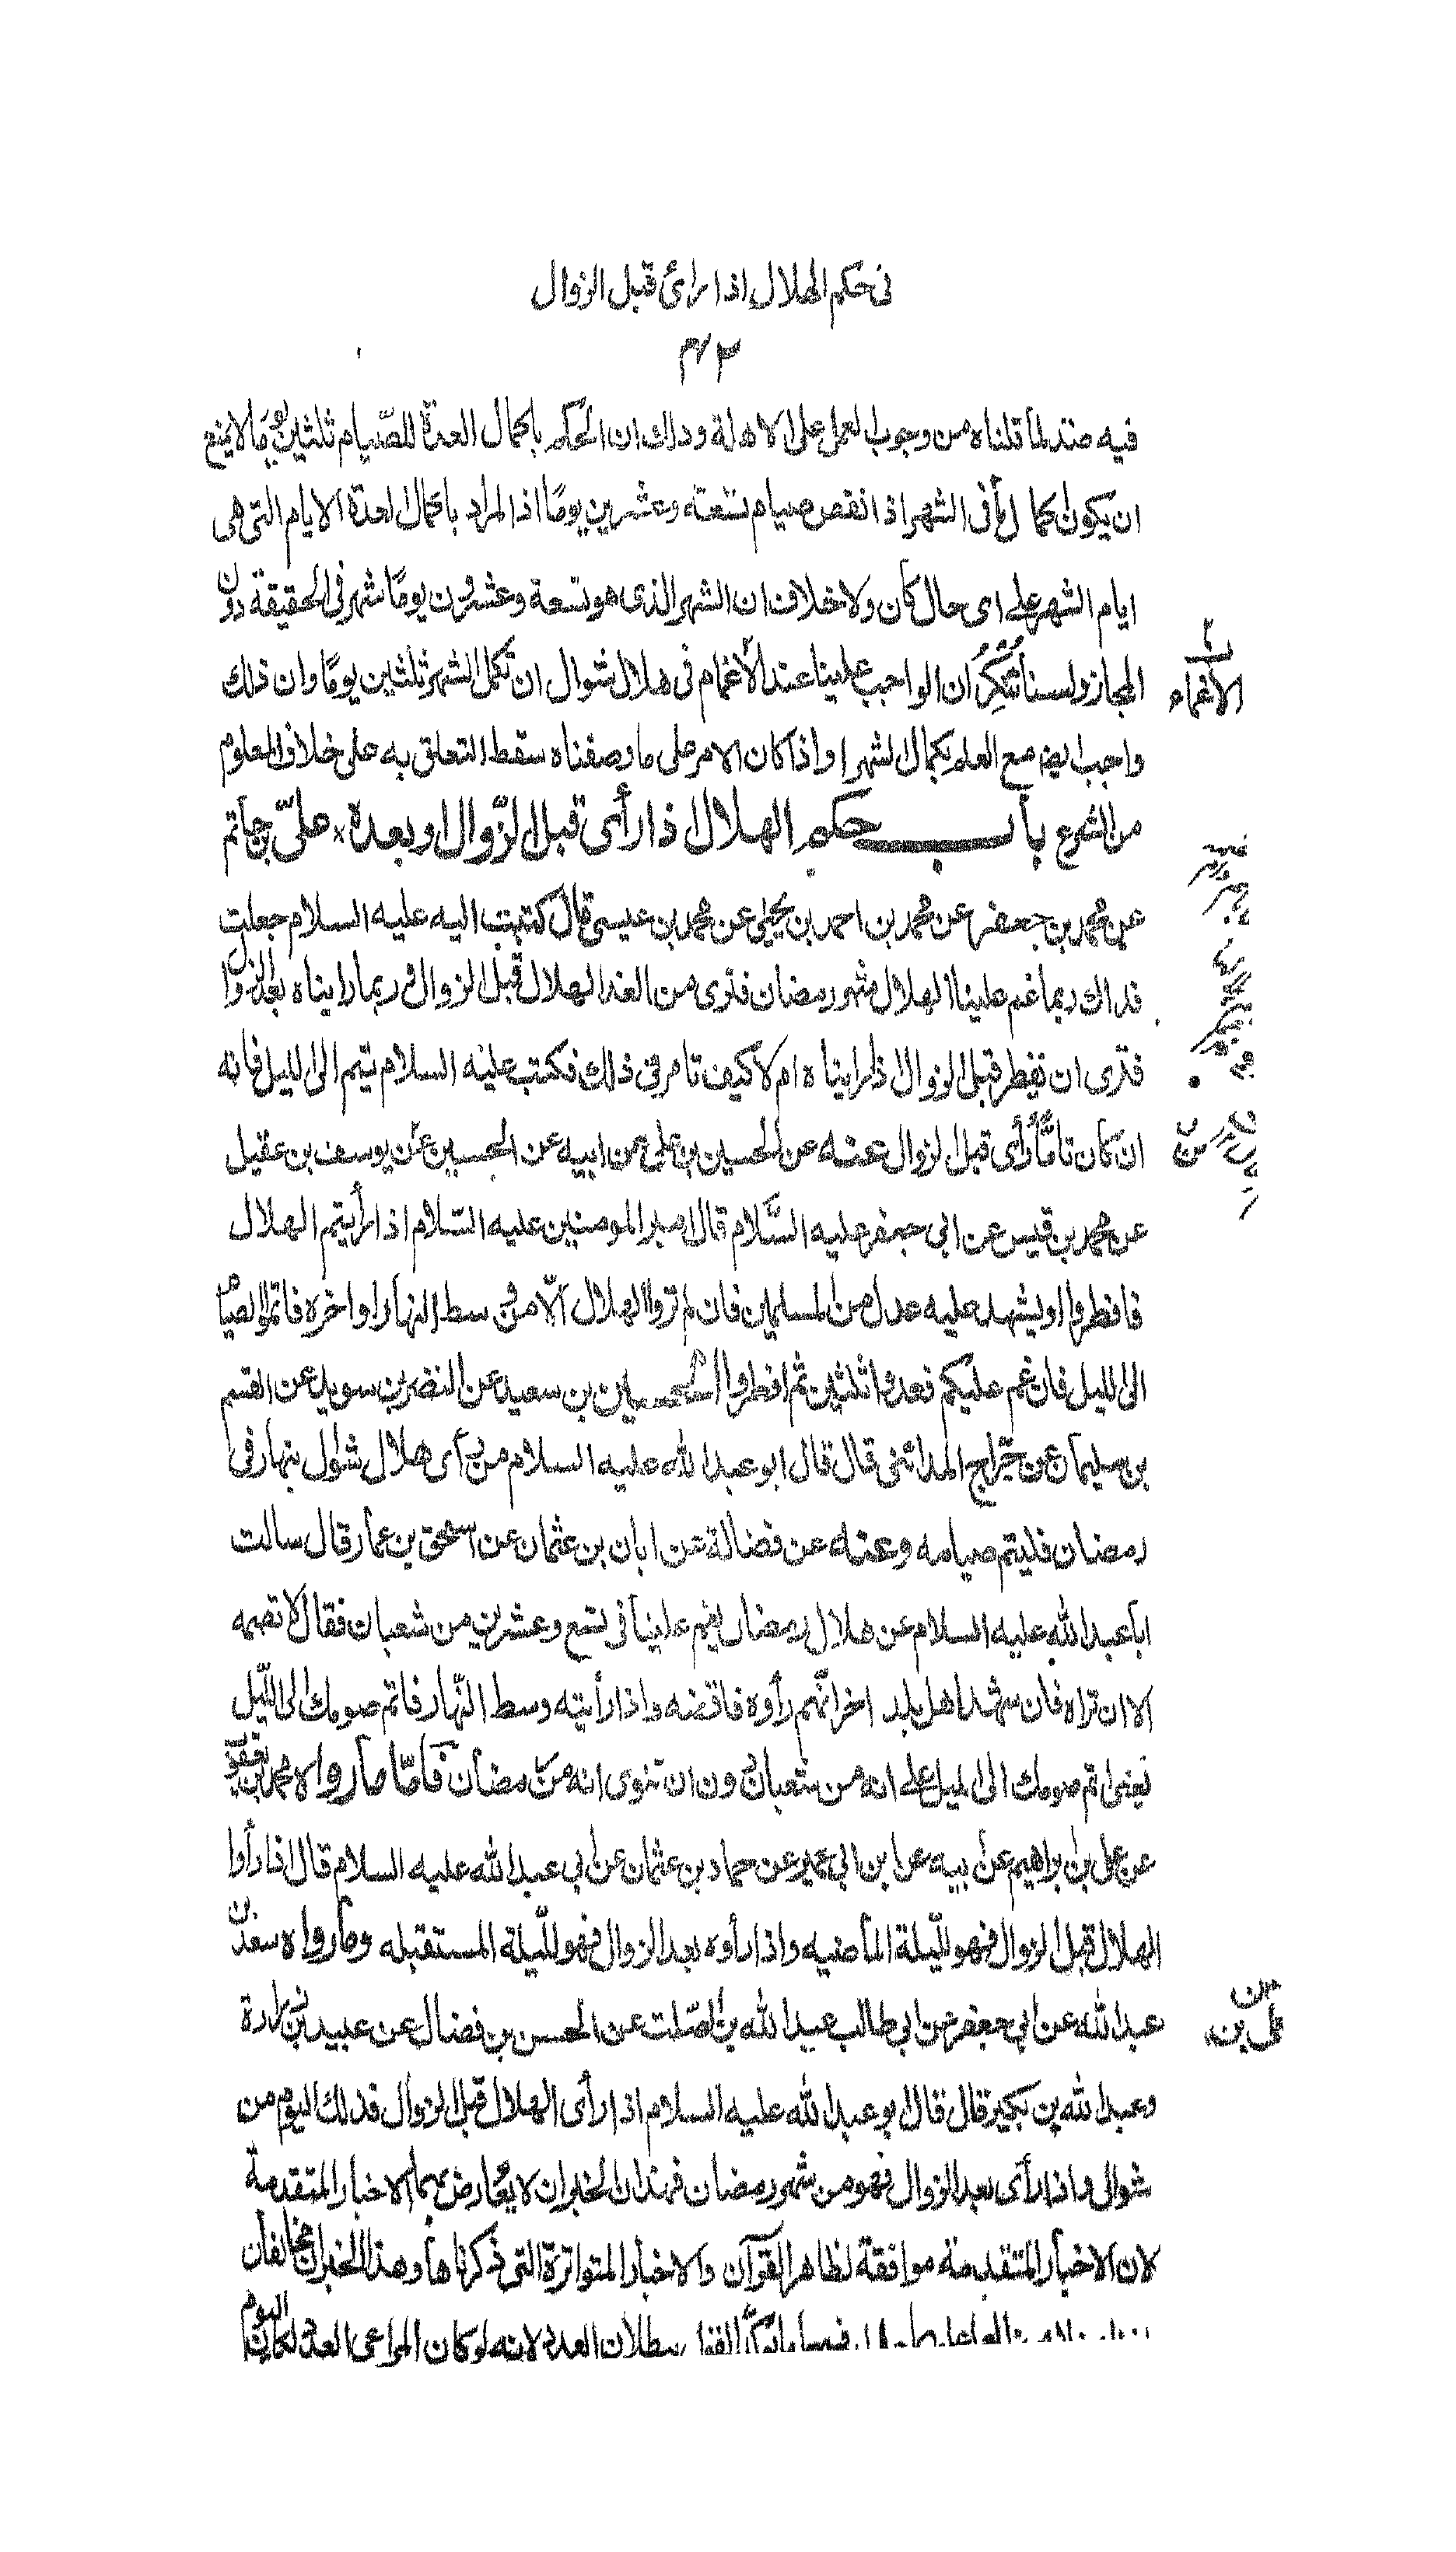 فى حكم الهلال اذا رائ قبل الزوال
فيه ضد لما قلناه من وجوب العمل على الاهلة وذلك ان الحكم باكمال العدة للصّيام ثلثين يومًا لا يمنع
ان يكون اكمالها فى الشهر اذا نقص صيام تسعة وعشرين يومًا اذ المراد باكمال العدة الايام التى هى
ايام الشهر على اى حال كان ولا خلاف ان الشهر الذى هو تسعة وعشرون يومًا شهر فى الحقيقة دون
المجاز ولسنا نُنْكِرُ ان الواجب علينا عند الأغمام فى هلال شوال ان نكمل الشهر ثلثين يومًا وان ذلك
الأغماء
واجب ايضا مع العلم بكمال الشهر واذا كان الامر على ما وصفناه سقط التعلق به على خلاف المعلوم
من الشرع باب حكم الهلال اذا رأى قبل الزّوال او بعده علىّ بن حاتم
عن محمد بن جعفر عن محمد بن احمد بن يحيى عن محمد بن عيسى قال كتبت اليه عليه السلام جعلت
فداك ربما غم علينا الهلال شهر رمضان فترى من الغد الهلال قبل الزوال وربما رايناه بعد الزوال
فترى ان نفطر قبل الزوال اذا رايناه ام لا كيف تامر فى ذلك فكتب عليه السلام تتم الى الليل فانه
ان كان تامًّا رُأى قبل الزوال عنه عن الحسين بن على عن ابيه عن الحسين عن يوسف بن عقيل
عن محمد بن قيس عن ابى جعفر عليه السَّلام قال امير المومنين عليه السّلام اذا رأيتم الهلال
فافطروا او يشهد عليه عدل من المسلمين فان لم تروا الهلال الّا من وسط النهار او اخره فاتموا الصيام
الى الليل فان غم عليكم فعدوا ثلثين ثم افطروا الحسين بن سعيد عن النضر بن سويد عن القسم
بن سليمان عن جرّاح المدائنى قال قال ابو عبد الله عليه السلام من رأى هلال شوال بنهار فى
رمضان فليتم صيامه وعنه عن فضالة عن ابان بن عثمان عن اسحق بن عمار قال سالت
ابا عبد الله عليه السلام عن هلال رمضان يغم علينا فى تسع وعشرين من شعبان فقال لا تصمه
الا ان تراه فان شهد اهل بلد اخر انّهم رأوه فاقضه واذا رأيته وسط النّهار فاتم صومك الى اللّيل
يعنى اتم صومك الى الليل على انه من شعبان دون ان تنوى انه من رمضان فَأمّا ما رواه محمد بن يعقوب
عن على بن ابراهيم عن ابيه عن ابن ابى عمير عن حماد بن عثمان عن ابى عبد الله عليه السلام قال اذا رأوا
الهلال قبل الزوال فهو للّيلة الماضيه واذا رأوه بعد الزوال فهو للّيلة المستقبله وما رواه سعد بن
عبد الله عن ابى جعفر عن ابى طالب عبد الله بن الصّلت عن الحسن بن فضال عن عبيد بن زرارة
على بن
وعبد الله بن بكير قال قال ابو عبد الله عليه السلام اذا رأى الهلال قبل الزوال فذلك اليوم من
شوال واذا رأى بعد الزوال فهو من شهر رمضان فهذان الخبران لا يعارض بهما الاخبار المتقدمة
لان الاخبار المتقدمة موافقة لظاهر القرآن والاخبار المتواترة التى ذكرناها وهذا الخبران مخالفان
بطلان العدد لانه لو كان المراعى العدد لكان اليوم